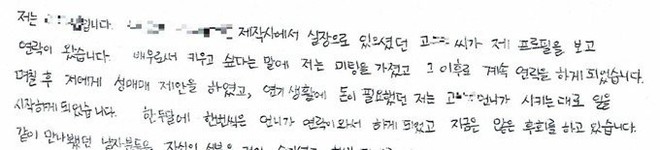 저는 입니다. 제작사에서 실장으로 있으셨던 고 씨가 제 프로필을 보고
연락이 왔습니다. 배우로서 키우고 싶다는 말에 저는 미팅을 가졌고 그 이후로 계속 연락을 하게 되었습니다.
며칠 후 저에게 성매매 제안을 하였고, 연기 생활에 돈이 필요했던 저는 고 언니가 시키는대로 일을
시작하게 되었습니다. 한두달에 한번씩은 언니가 연락이와서 하게 되었고 지금은 많은 후회를 하고 있습니다.
같이 만나봤던 남자분들은 자신의